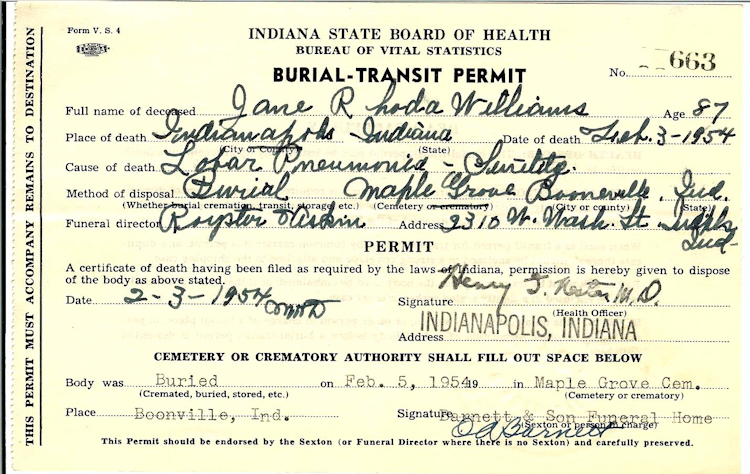 Form V. S. 4
INDIANA STATE BOARD OF HEALTH
BUREAU OF VITAL STATISTICS
BURIAL-TRANSIT PERMIT
No. 663
Full name of deceased Jane Rhoda Williams Age 87
Place of death Indianapolis Indiana Date of death Feb. 3-1954
(City or County) (State)
Cause of death Lobar Pneumonia - Senility.
Method of disposal Burial Maple Grove Booneville. Ind.
(Whether burial cremation, transit, storage etc.) (Cemetery or crematory) (City or county) (State)
Funeral director Royster Askin Address 2310 W. Wash. St. Indpls
Ind-
PERMIT
A certificate of death having been filed as required by the laws of Indiana, permission is hereby given to dispose
of the body as above stated.
Date 2-3-1954 Signature Henry G. Nester M.D.
(Health Officer)
Address INDIANAPOLIS, INDIANA
CEMETERY OR CREMATORY AUTHORITY SHALL FILL OUT SPACE BELOW
Body was Buried on Feb. 5, 1954 19 in Maple Grove Cem.
(Cremated, buried, stored, etc.) (Cemetery or crematory)
Place Boonville, Ind. Signature Barnett & Son Funeral Home
(Sexton or person in charge)
O A Barnett
This Permit should be endorsed by the Sexton (or Funeral Director where there is no Sexton) and carefully preserved.
THIS PERMIT MUST ACCOMPANY REMAINS TO DESTINATION